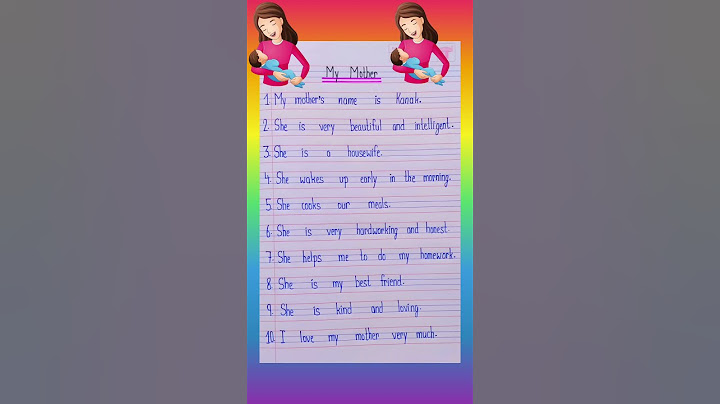 My Mother
1. My mother's name is Kanak.
2. She is very beautiful and intelligent.
3. She is a housewife.
4. She wakes up early in the morning.
5. She cooks our meals.
6. She is very hardworking and honest.
7. She helps me to do my homework.
8. She is my best friend.
9. She is kind and loving.
10. I love my mother very much.